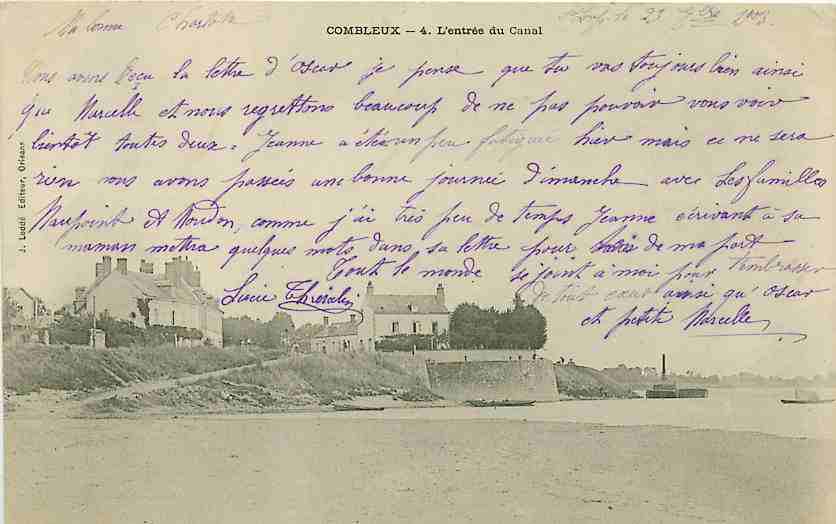 Ma bonne Charlotte
COMBLEUX — 4. L'entrée du Canal
le 23 1903
Nous avons reçu la lettre d'Oscar je pense que tu vas toujours bien ainsi
que Marcelle et nous regrettons beaucoup de ne pas pouvoir vous voir
bientôt toutes deux. Jeanne a été un peu fatiguée hier mais ce ne sera
rien nous avons passés une bonne journée Dimanche avec Les familles
Maupoint et Moudon, comme j'ai très peu de temps Jeanne écrivant à sa
maman mettra quelques mots dans sa lettre pour de ma part
Tout le monde se joint à moi pour t'embrasser
de tout cœur ainsi qu'Oscar
et petite Marcelle
Lucie
J. Loddé Editeur, Orleans